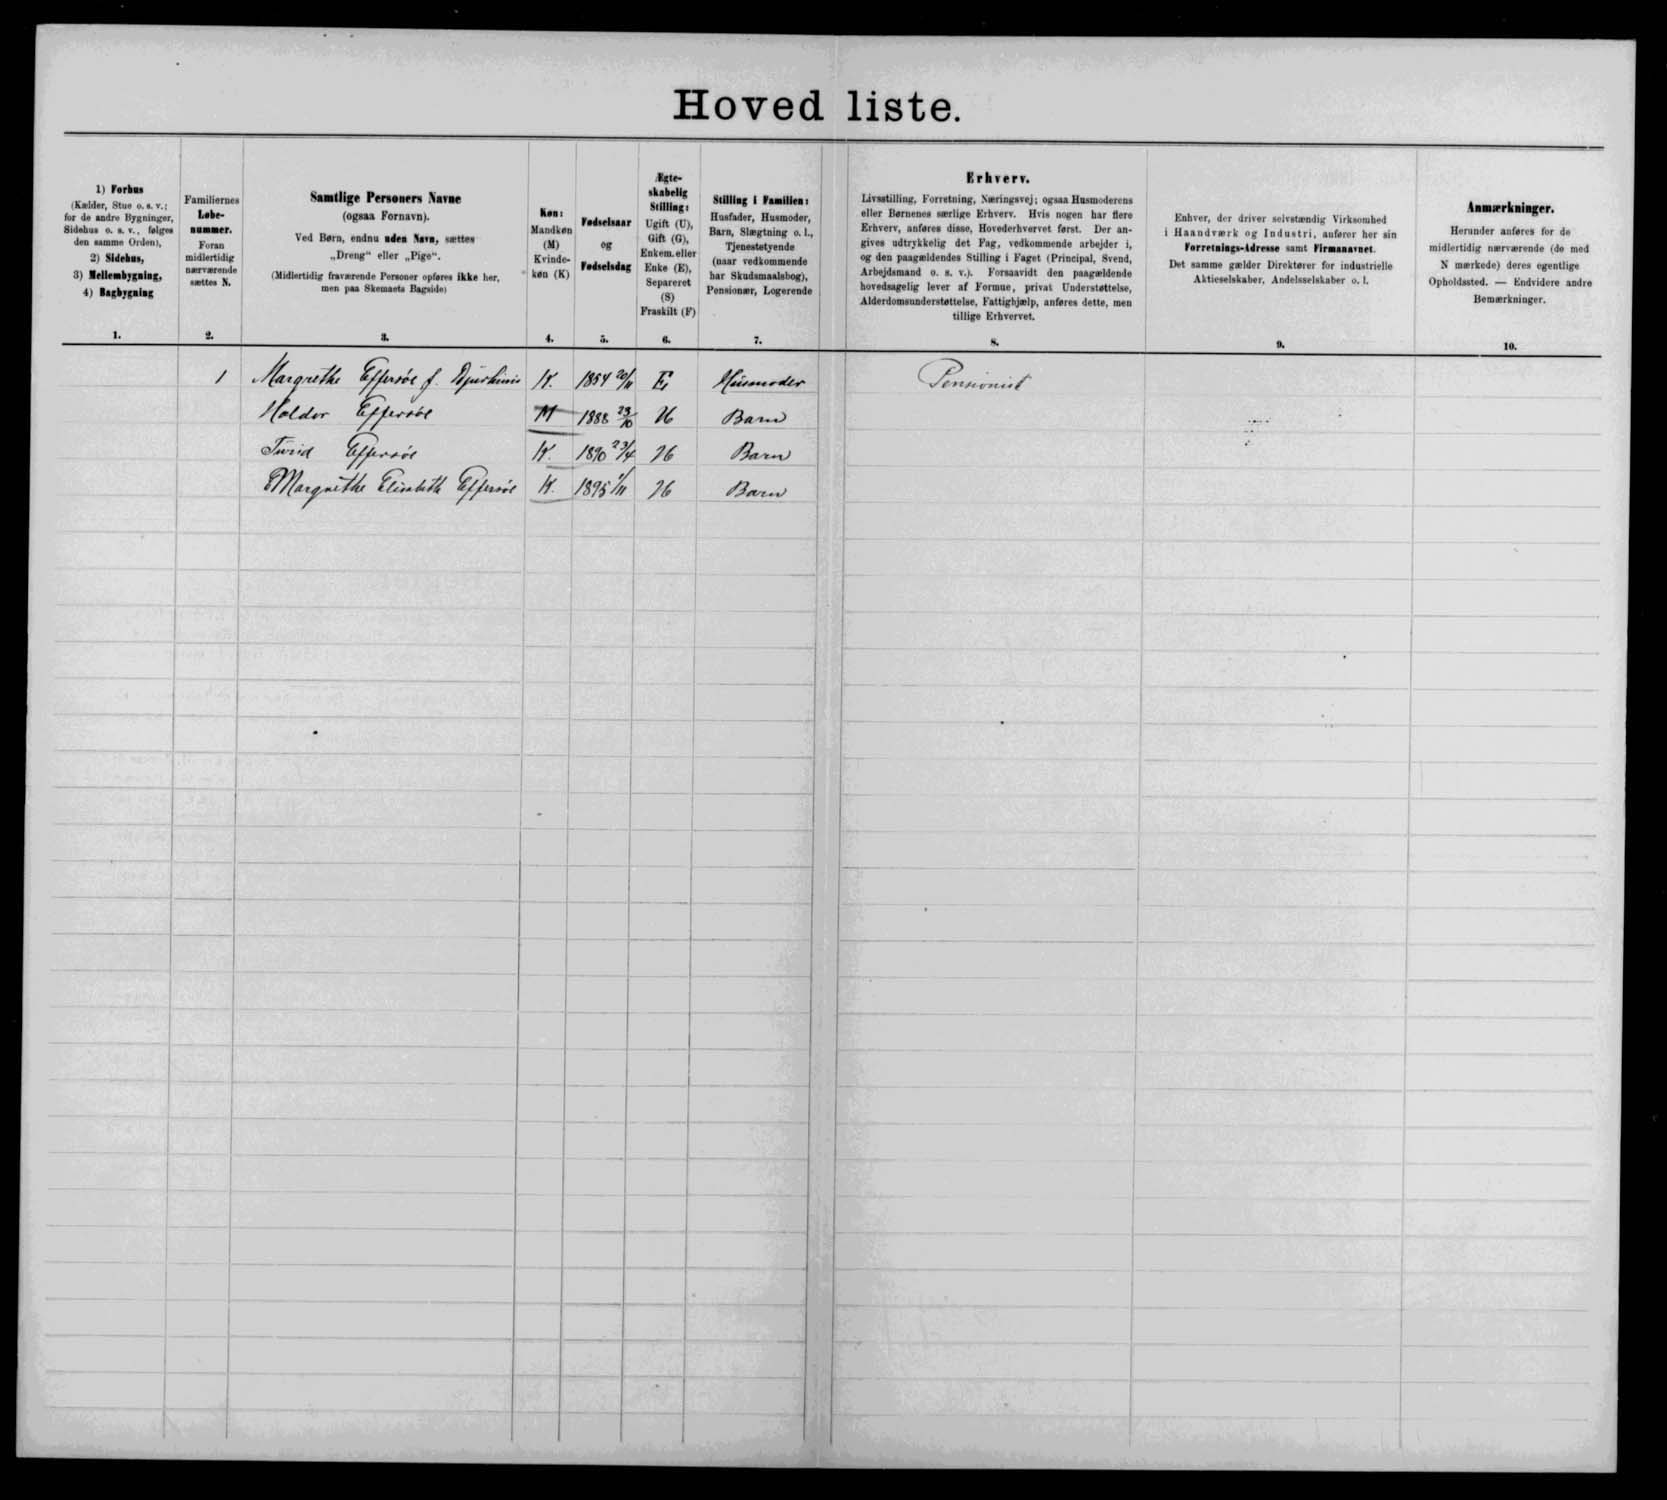 Hoved liste.
1) Forhus
(Kælder, Stue o. s. v.;
for de andre Bygninger,
Sidehus o. s. v., følges
den samme Orden),
2) Sidehus,
3) Mellembygning,
4) Bagbygning
1.
Familiernes
Løbe-
nummer.
Foran
midlertidig
nærværende
sættes N.
2.
Samtlige Personers Navne
(ogsaa Fornavn).
Ved Børn, endnu uden Navn, sættes
„Dreng“ eller „Pige“.
(Midlertidig fraværende Personer opføres ikke her,
men paa Skemaets Bagside)
3.
Køn:
Mandkøn
(M)
Kvinde-
køn (K)
4.
Fødselsaar
og
Fødselsdag
5.
Ægte-
skabelig
Stilling:
Ugift (U),
Gift (G),
Enkem. eller
Enke (E),
Separeret
(S)
Fraskilt (F)
6.
Stilling i Familien:
Husfader, Husmoder,
Barn, Slægtning o. l.,
Tjenestetyende
(naar vedkommende
har Skudsmaalsbog),
Pensionær, Logerende
7.
Erhverv.
Livsstilling, Forretning, Næringsvej; ogsaa Husmoderens
eller Børnenes særlige Erhverv. Hvis nogen har flere
Erhverv, anføres disse, Hovederhvervet først. Der an-
gives udtrykkelig det Fag, vedkommende arbejder i,
og den paagældendes Stilling i Faget (Principal, Svend,
Arbejdsmand o. s. v.). Forsaavidt den paagældende
hovedsagelig lever af Formue, privat Understøttelse,
Alderdomsunderstøttelse, Fattighjælp, anføres dette, men
tillige Erhvervet.
8.
Enhver, der driver selvstændig Virksomhed
i Haandværk og Industri, anfører her sin
Forretnings-Adresse samt Firmanavnet.
Det samme gælder Direktører for industrielle
Aktieselskaber, Andelsselskaber o. l.
9.
Anmærkninger.
Herunder anføres for de
midlertidig nærværende (de med
N mærkede) deres egentlige
Opholdssted. — Endvidere andre
Bemærkninger.
10.
1 Margrethe Effersøe f. Djurhuus K. 1854 20/11 E Husmoder Pensionist
Holdor Effersøe M 1888 23/10 U Barn
Turid Effersøe K. 1890 23/4 U Barn
Margrethe Elisabeth Effersøe K. 1895 1/11 U Barn